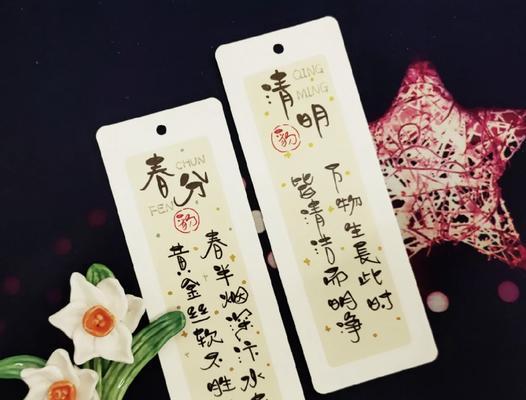 春分
CHUN
FEN
春半烟深汴水
黄金丝软不胜
清明
QING
MING
万物生長此时
皆清洁而明净